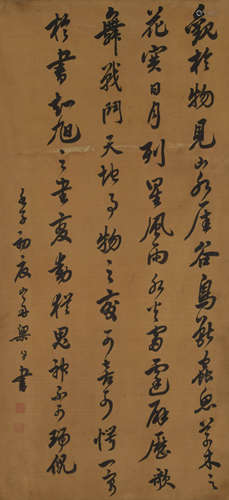 觀於物見山水厓谷鳥獸蟲魚草木之
花實日月列星風雨水火雷霆霹靂歌
舞戰鬥天地事物之變可喜可愕一寓
於書故旭之書變動猶鬼神不可端倪
壬子初夏山舟梁同書